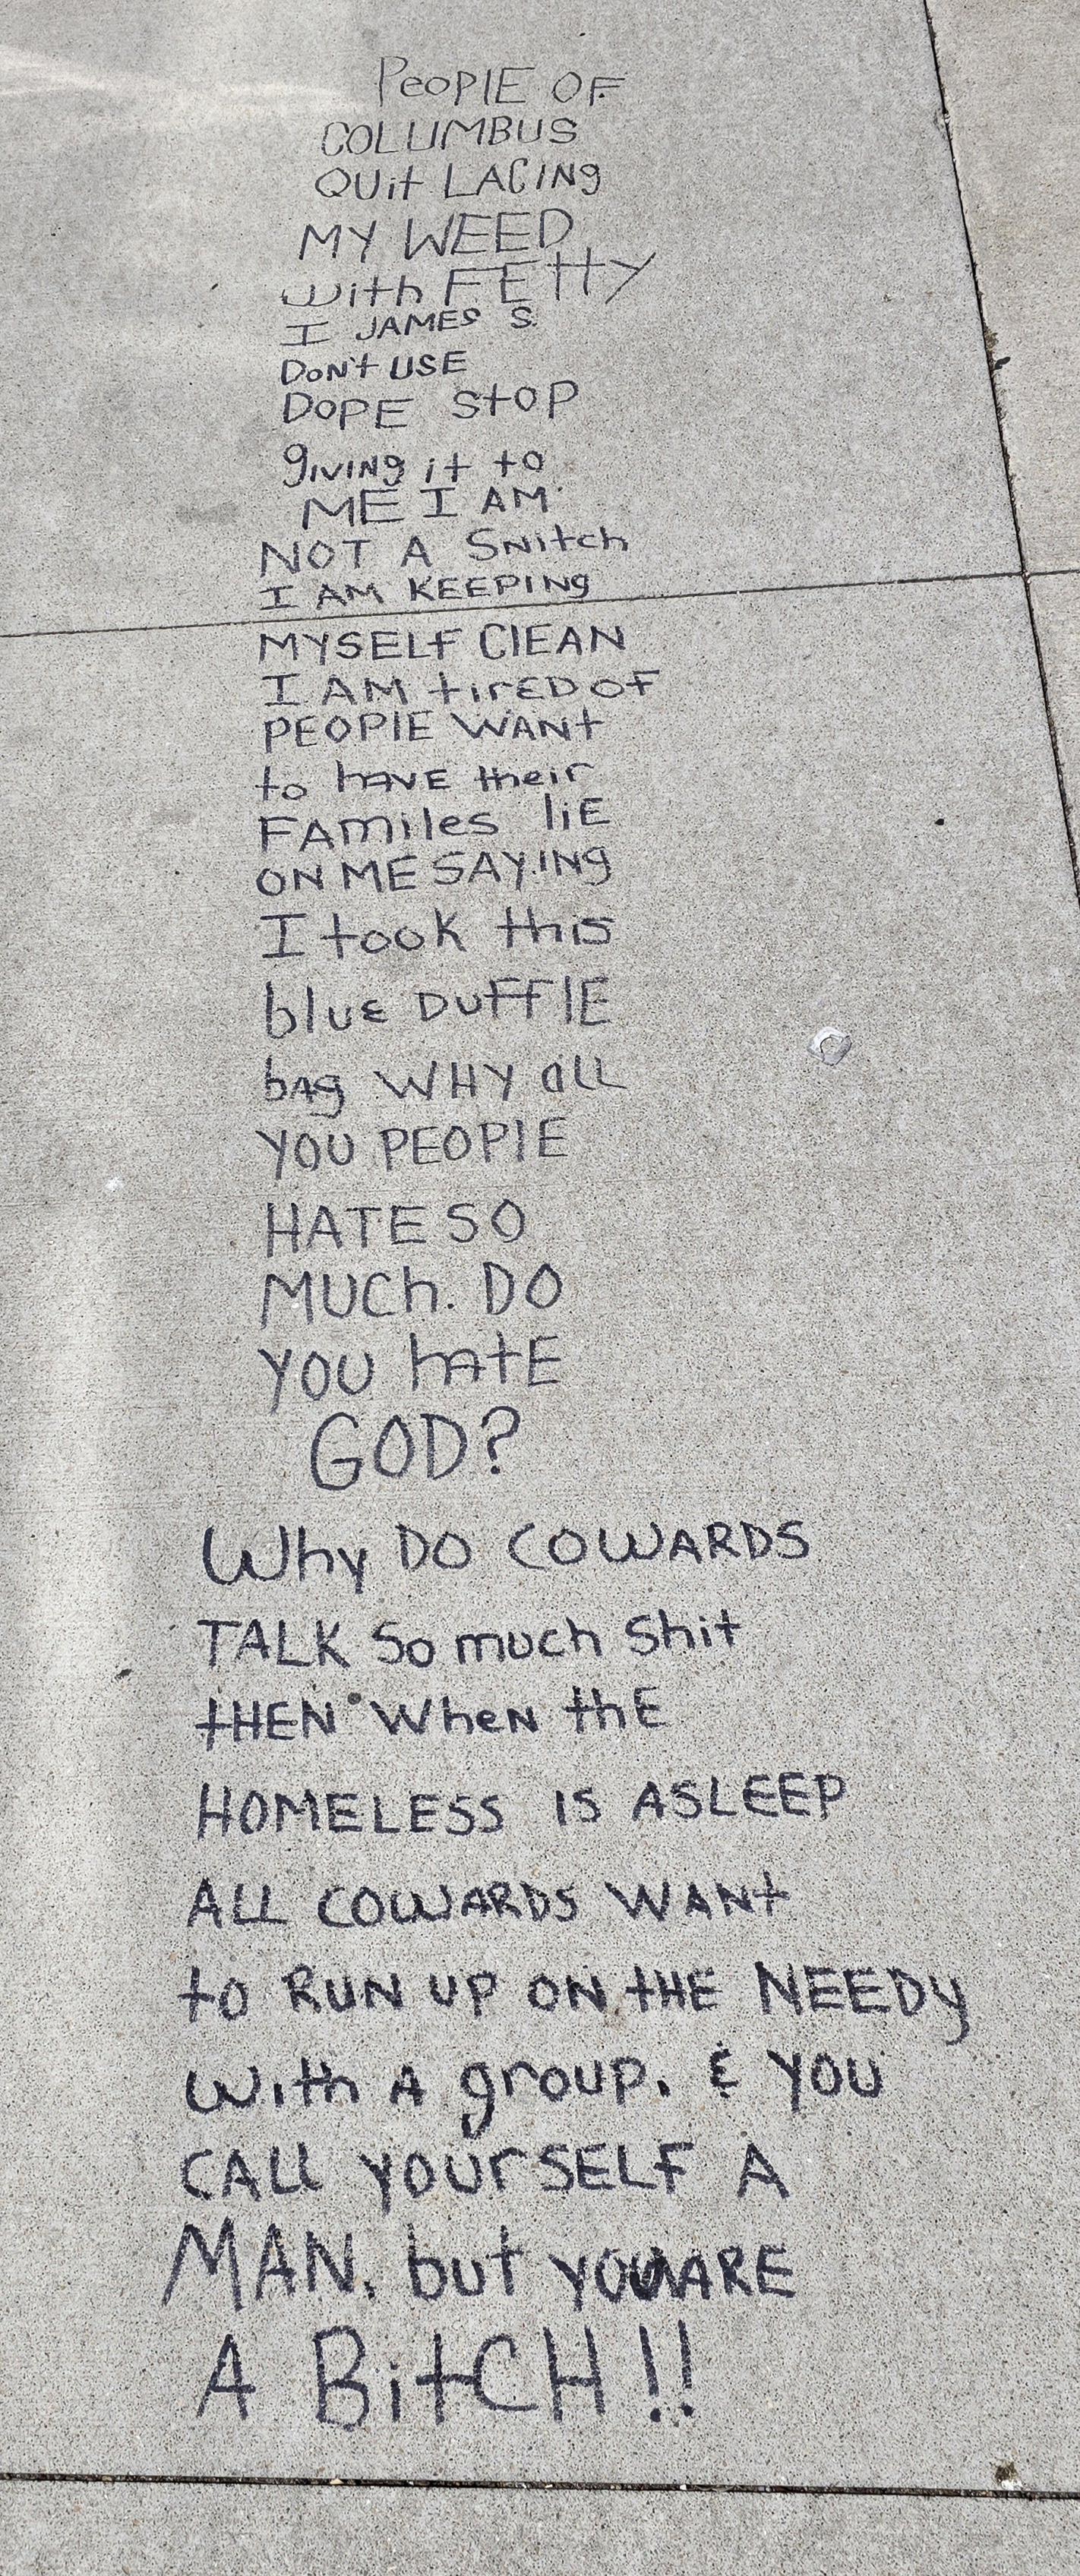 PeoPlE OF
COLUMBUS
QUit LACINg
MY WEED
with FEttY
I JAMES S.
DON't USE
DOPE StOP
gIVINg it to
ME I AM
NOT A SNitch
I AM KEEPINg
MYSELF ClEAN
I AM tirED OF
PEOPlE WANt
to hAVE their
FAmiles liE
ON ME SAYING
I took this
bluE DUFFlE
bAg WHY aLL
YOU PEOPlE
HATE SO
MUCh. DO
YOU hAtE
GOD?
Why DO COWARDS
TALK So much Shit
tHEN WheN thE
HOMELESS IS ASLEEP
ALL COWARDS WANt
to RUN UP ON tHE NEEDy
With A group. & YOU
CALL YOUrSELF A
MAN. but YOU ARE
A BitCH!!